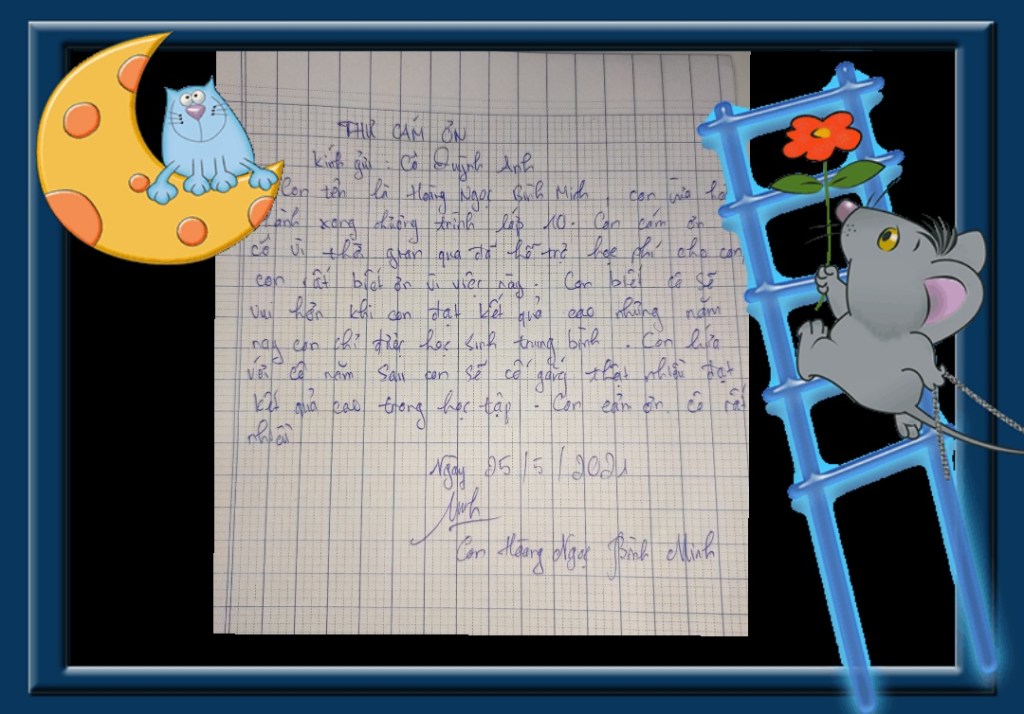 THƯ CÁM ƠN
Kính gửi : Cô Quỳnh Anh
Con tên là Hoàng Ngọc Bình Minh , con vừa
thành xong chương trình lớp 10. Con cám ơn
cô vì thời gian qua đã hỗ trợ học phí cho con
con rất biết ơn vì việc này. Con biết cô sẽ
vui hơn khi con đạt kết quả cao nhưng năm
nay con chỉ được học sinh trung bình . Con hứa
với cô năm sau con sẽ cố gắng thật nhiều đạt
kết quả cao trong học tập . Con cảm ơn cô rất
nhiều
Ngày 25/5/2021
Minh
Con Hoàng Ngọc Bình Minh